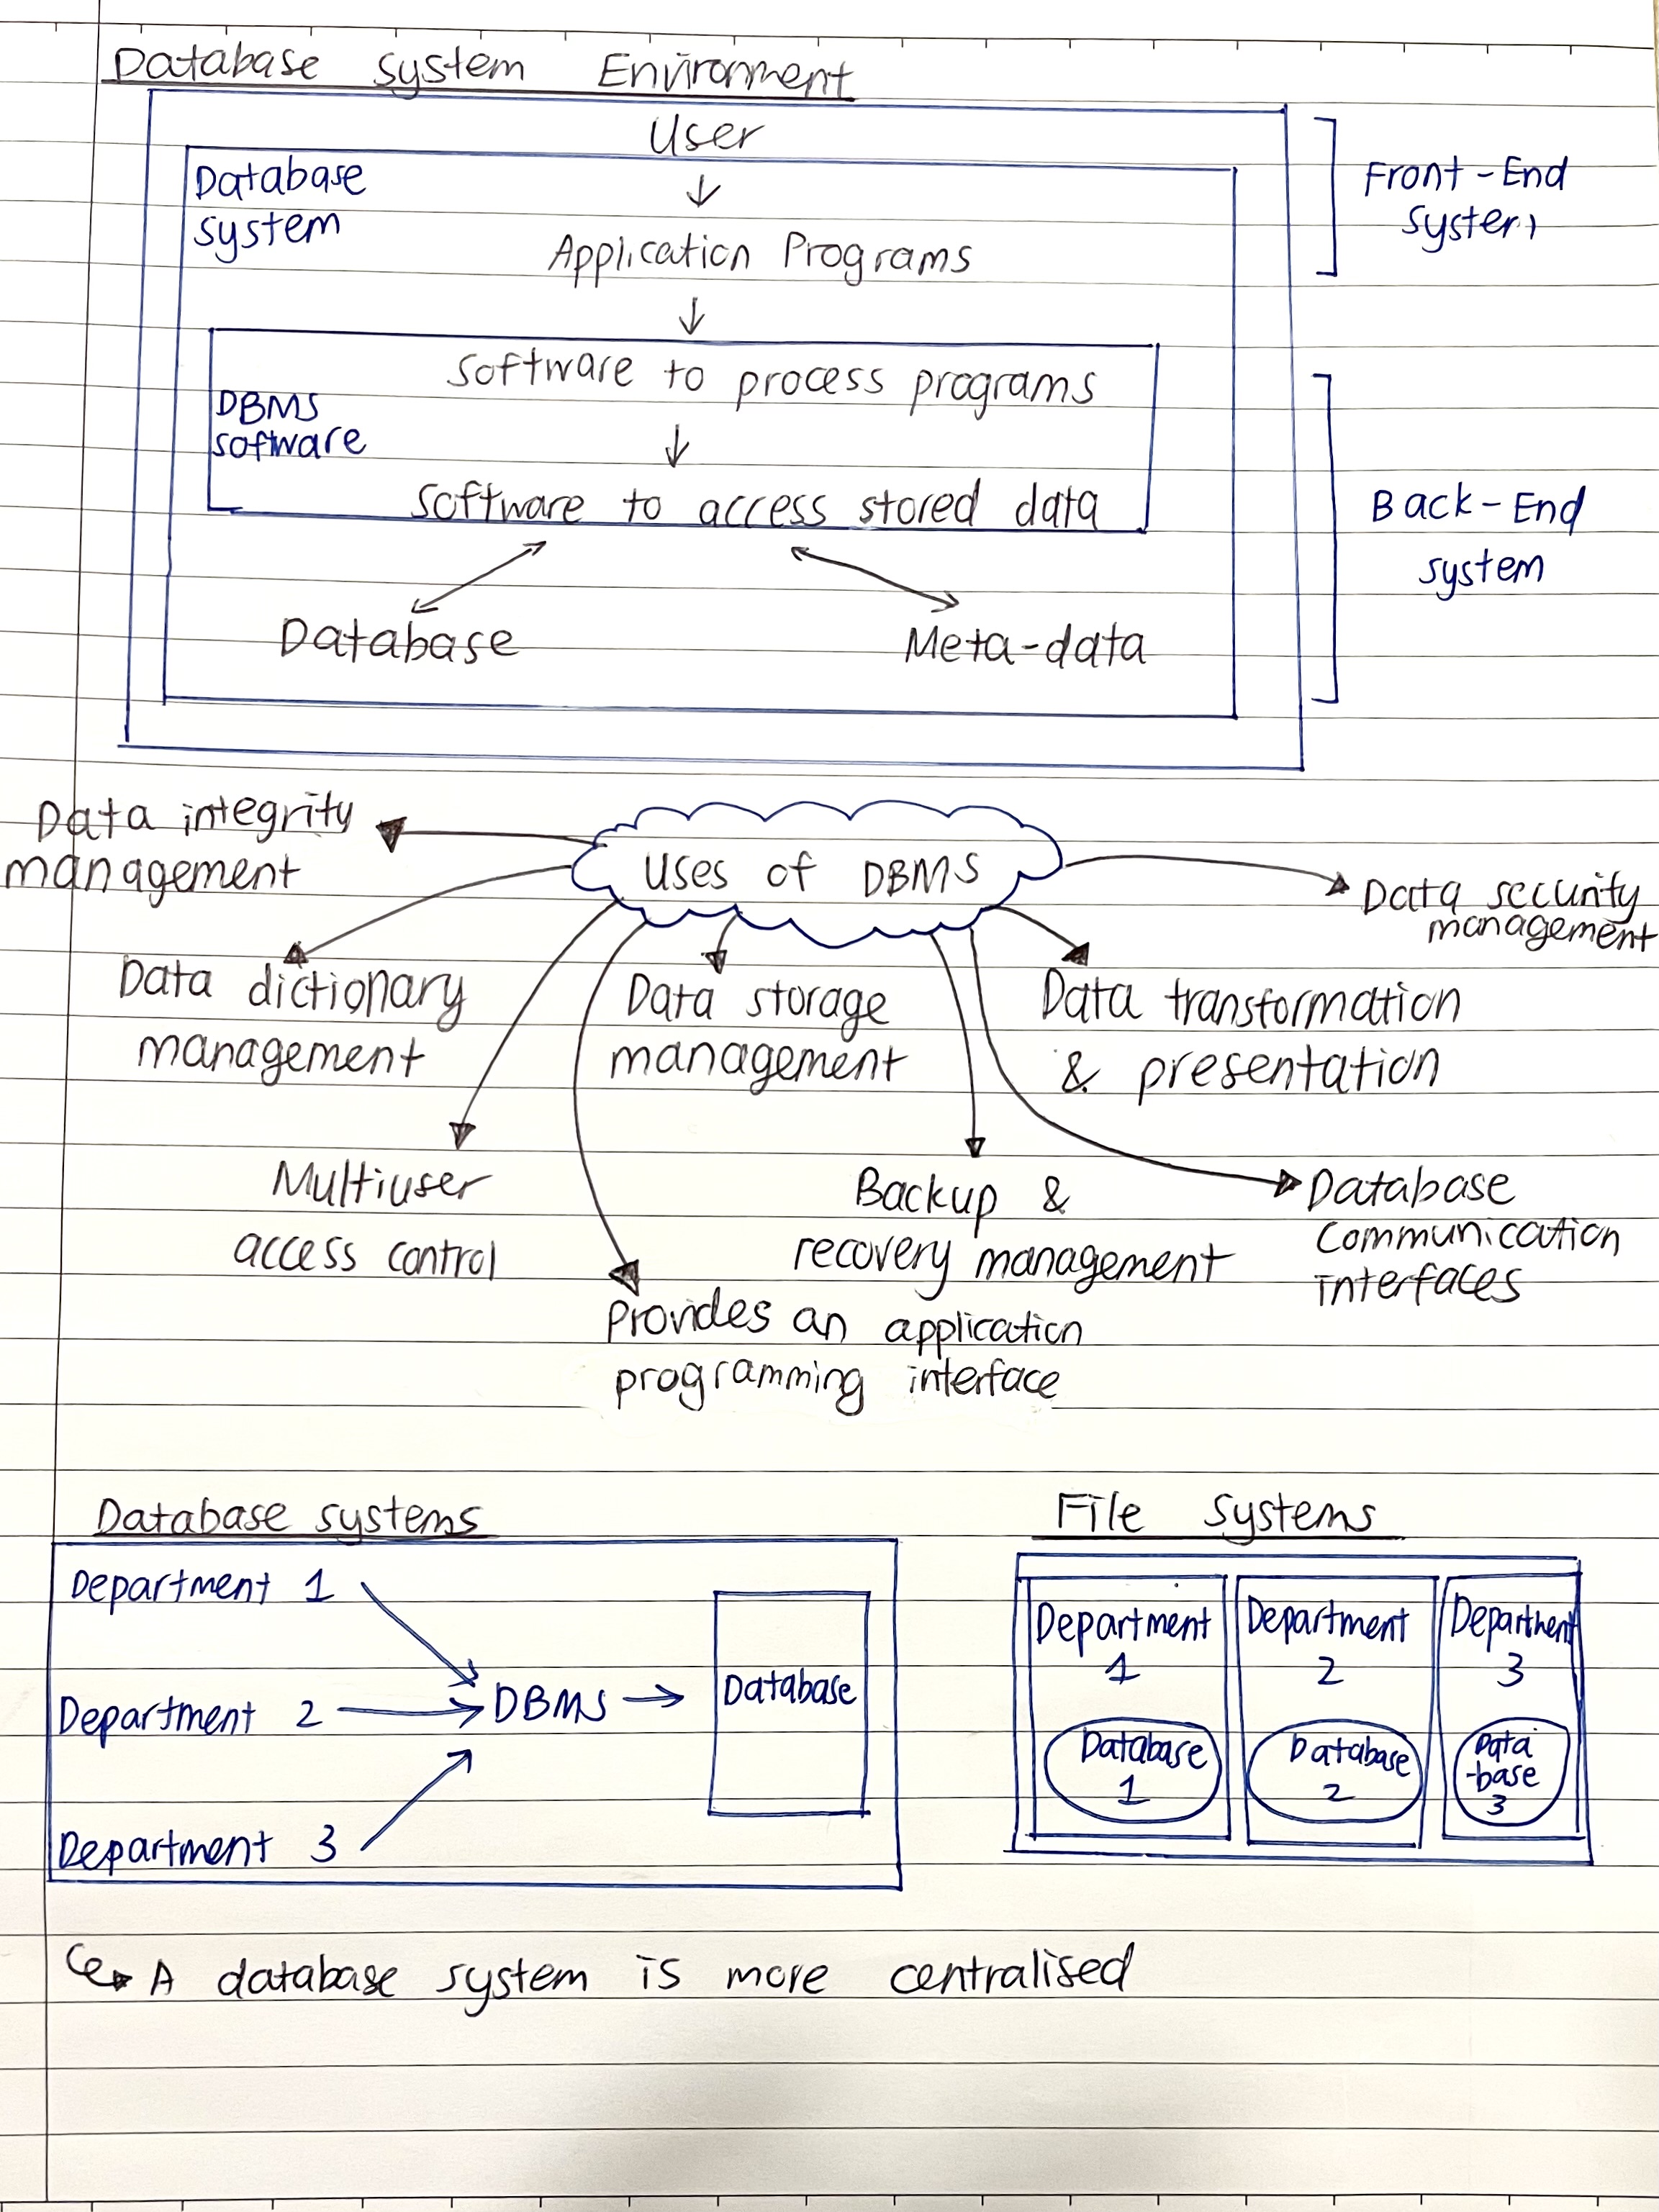 Database system Environment
User
Database
system
Front-End
system
Application Programs
Software to process programs
DBMS
software
Software to access stored data
Back-End
system
Database
Meta-data
Data integrity
management
Uses of DBMS
Data security
management
Data dictionary
management
Data storage
management
Data transformation
& presentation
Multiuser
access control
Backup &
recovery management
Database
communication
interfaces
Provides an application
programming interface
Database systems
Department 1
Department 2
DBMS
Database
Department 3
File systems
Department
1
Database
1
Department
2
Database
2
Department
3
Data
-base
3
A database system is more centralised